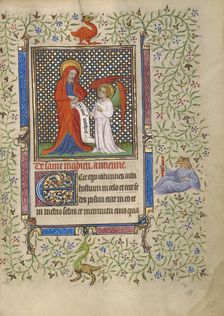 De saint mahieu. antienne
Ecce ego iohannes uidi
hostium in celo et ecce se
des posita erat in eo et
in medio sedis et in circuitu eius